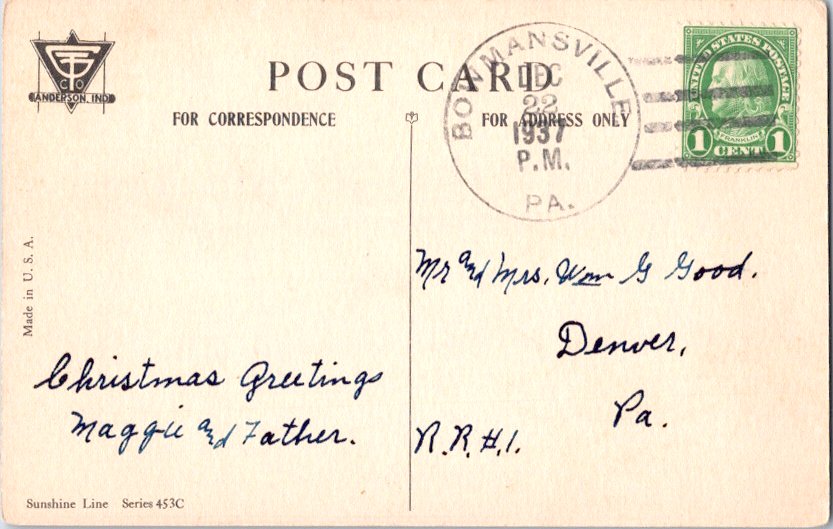 GTCO
ANDERSON, IND.
POST CARD
FOR CORRESPONDENCE
FOR ADDRESS ONLY
BOWMANSVILLE
DEC
22
1937
P.M.
PA.
UNITED STATES POSTAGE
FRANKLIN
1 CENT 1
Made in U. S. A.
Mr and Mrs. Wm G Good.
Denver,
Pa.
R.R.#.1.
Christmas Greetings
Maggie and Father.
Sunshine Line Series 453C